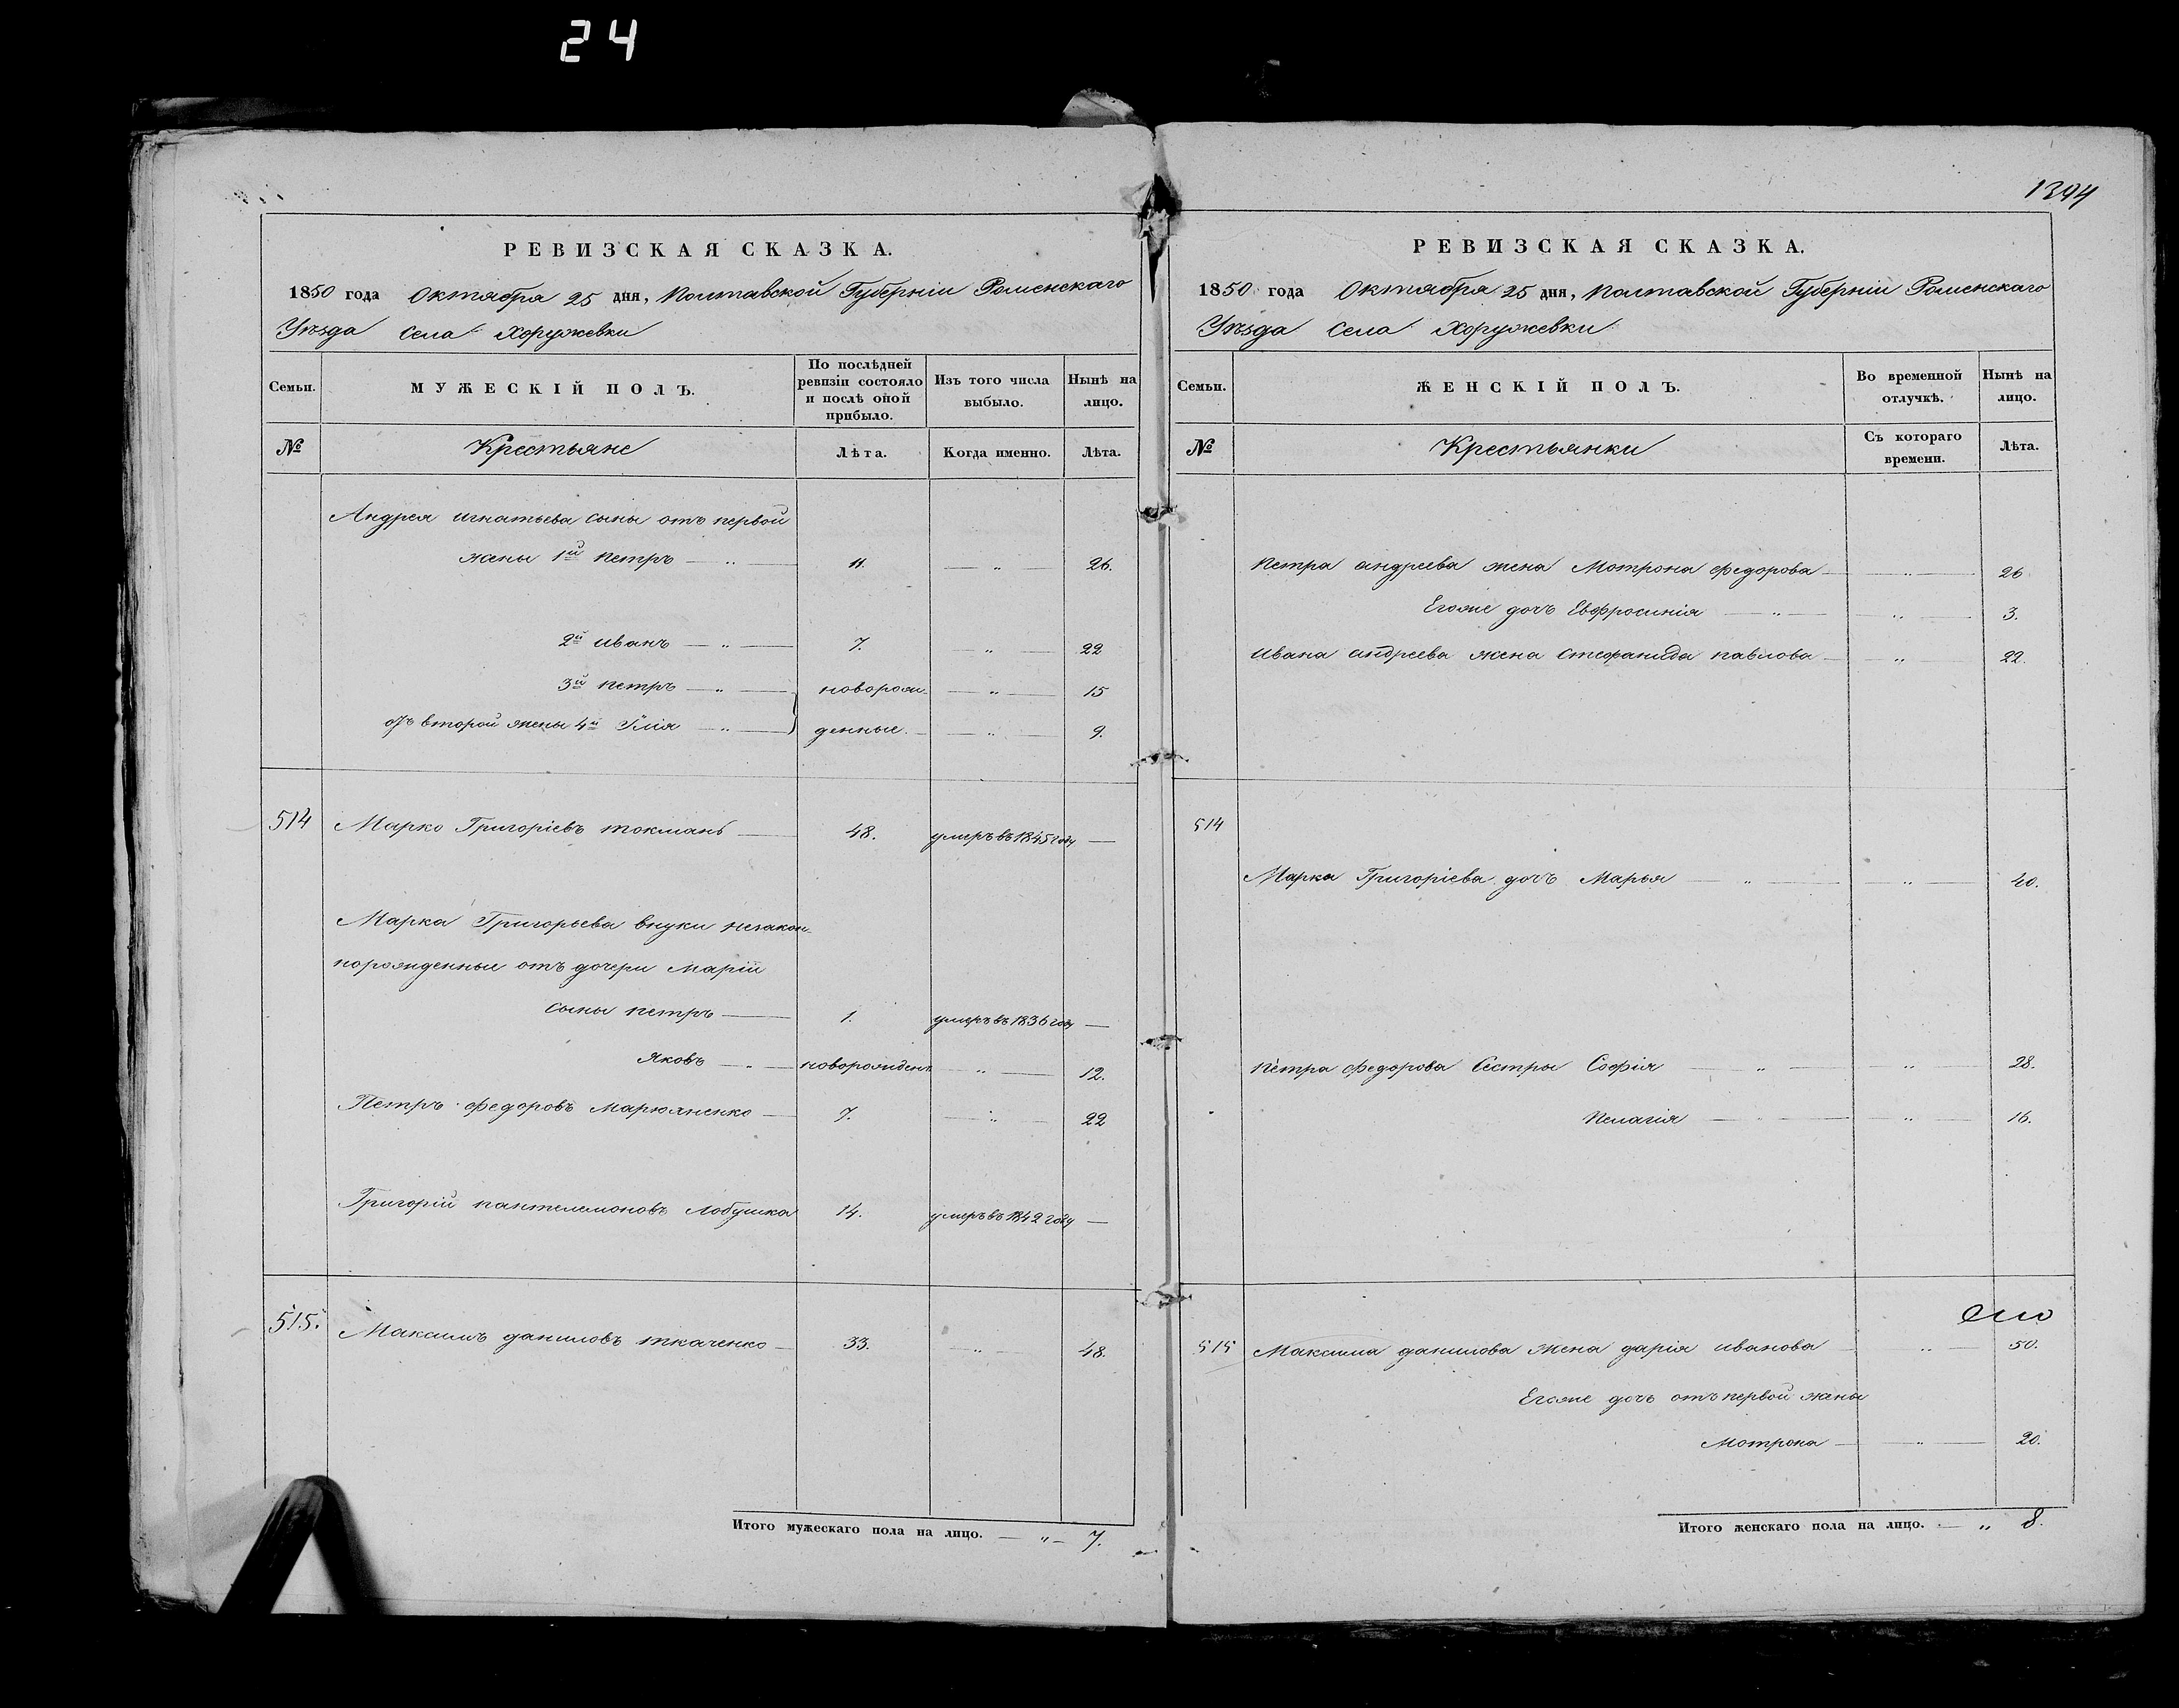 24
1394
РЕВИЗСКАЯ СКАЗКА.
1850 года Октября 25 дня, Полтавской Губерніи Роменскаго
Уѣзда Села Хоружевки
Семьи. МУЖЕСКІЙ ПОЛЪ. По послѣдней ревизіи состояло и послѣ оной прибыло. Изъ того числа выбыло. Нынѣ на лицо.
№ Крестьяне Лѣта. Когда именно. Лѣта.
Андрея игнатьева сыны отъ первой
жены 1й петръ — „ — 11. — „ — 26.
2й иванъ — „ — 7. — „ — 22
3й петръ — „ — новорож- — „ — 15
отъ второй жены 4й Илія — „ — денные. — „ — 9.
514 Марко Григоріевъ токмань — 48. умеръ въ 1845 году —
Марка Григорьева внуки незакон-
порожденные отъ дочери Маріи
сыны петръ — 1. умеръ въ 1836 году —
Яковъ — „ — новорожден. — „ — 12.
Петръ федоровъ Марюяненко — 7. — „ — 22
Григорій пантелемоновъ Лобушка 14. умеръ въ 1842 году —
515. Максимъ даниловъ ткаченко — 33. — „ — 48.
Итого мужескаго пола на лицо. — „ — 7.
РЕВИЗСКАЯ СКАЗКА.
1850 года Октября 25 дня, Полтавской Губерніи Роменскаго
Уѣзда Села Хоружевки
Семьи. ЖЕНСКІЙ ПОЛЪ. Во временной отлучкѣ. Нынѣ на лицо.
№ Крестьянки Съ котораго времени. Лѣта.
петра андреева жена Мотрона федорова — „ — 26
Егоже дочь Евфросинія — „ — „ — 3.
ивана андреева жена стефанида павлова — „ — 22.
514
Марка Григоріева дочъ Марья — „ — „ — 40.
петра федорова Сестры Софія — „ — „ — 28.
Пелагія — „ — „ — 16.
515 Максима данилова жена дарія иванова — „ — 50.
Егоже дочь отъ первой жены
Мотрона — „ — 20.
Итого женскаго пола на лицо. — „ 8.